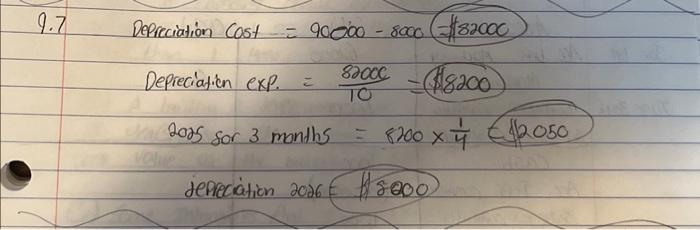 9.7 Depreciation Cost = 90000 - 8000 = $82000
Depreciation exp. = 82000 / 10 = $8200
2025 for 3 months = 8200 x 1/4 = $2050
depreciation 2026 =